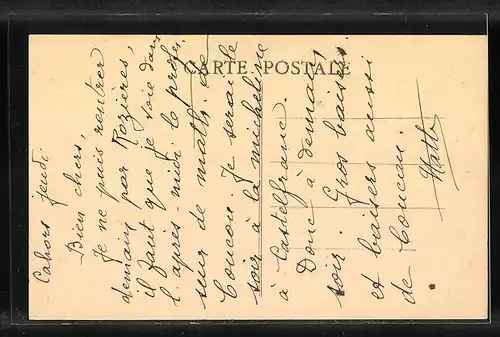 CARTE POSTALE
Cahors jeudi
Bien chers,
Je ne puis rentrer
demain par Rozieres,
il faut que je voie dans
l'après-midi le profes
seur de math. de
Coucou. Je serai le
soir à la micheline
à Castelfranc.
Donc à demain
soir. Gros baisers
et baisers aussi
de Coucou.